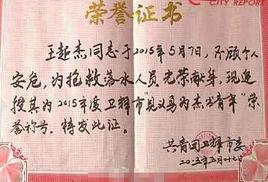 CITY REPORT
荣誉证书
王超杰同志于2015年5月7日,不顾个人
安危,为抢救落水人员光荣献身。现追
授其为2015年度卫辉市"见义勇为杰出青年"荣
誉称号,特发此证。
共青团卫辉市委
二〇一五年五月十七日